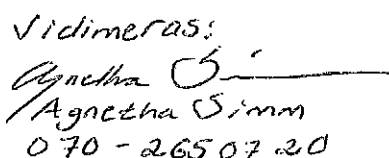 Vidimeras:
Agnetha Simm
Agnetha Simm
070-265 07 20